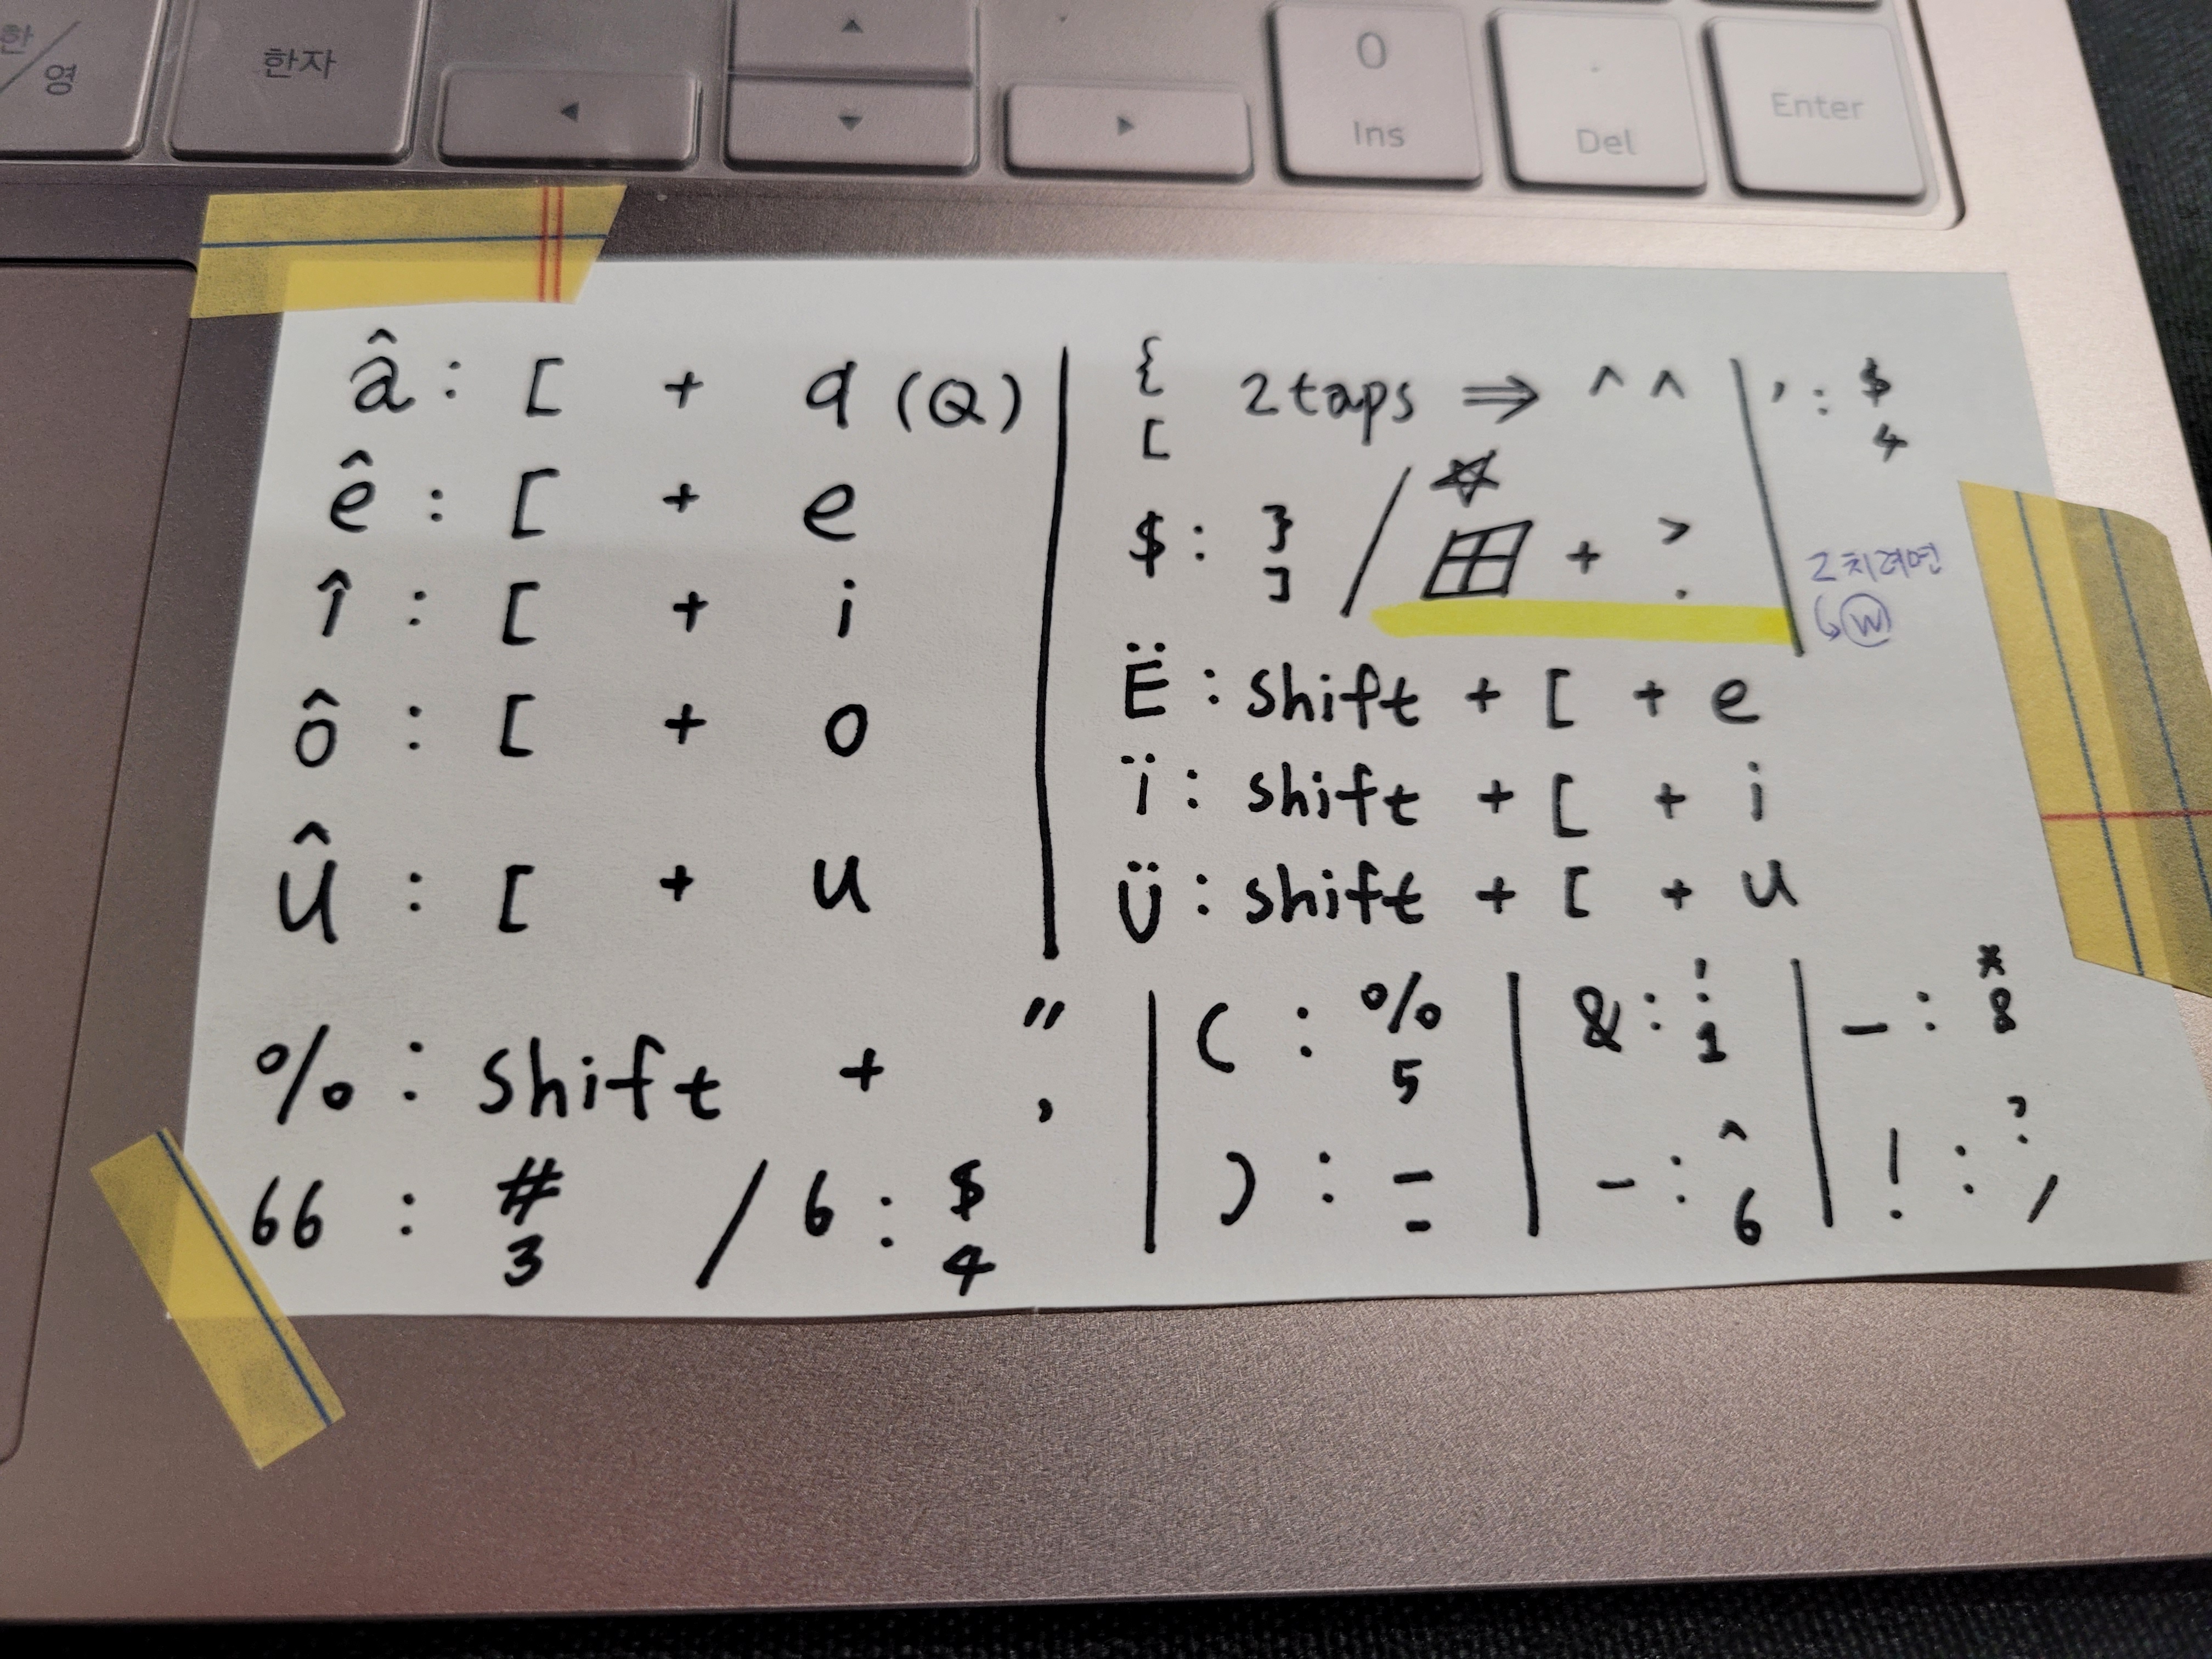 한/영 한자 ◀ ▲ ▼ ▶ 0 Ins . Del Enter
â : [ + q (Q)
ê : [ + e
î : [ + i
ô : [ + o
û : [ + u
{ [ 2 taps ⇒ ^ ^
' : $ 4
$ : } ] / ☆ ⊞ + > .
z 치려면
↳ W
Ë : shift + [ + e
ï : shift + [ + i
Ü : shift + [ + u
% : shift + " '
66 : # 3 / 6 : $ 4
( : % 5
) : _ -
& : ! 1
- : ^ 6
_ : * 8
! : ? /